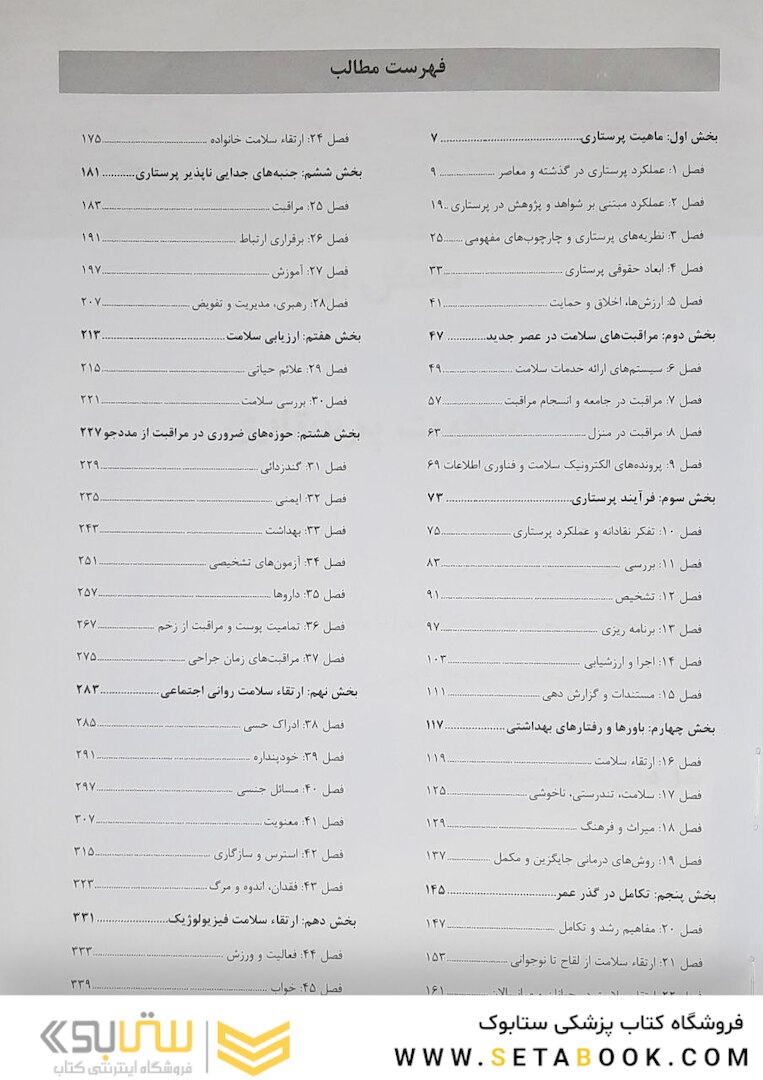 فهرست مطالب
بخش اول: ماهیت پرستاری ۷
فصل ۱: عملکرد پرستاری در گذشته و معاصر ۹
فصل ۲: عملکرد مبتنی بر شواهد و پژوهش در پرستاری ۱۹
فصل ۳: نظریه‌های پرستاری و چارچوب‌های مفهومی ۲۵
فصل ۴: ابعاد حقوقی پرستاری ۳۳
فصل ۵: ارزش‌ها، اخلاق و حمایت ۴۱
بخش دوم: مراقبت‌های سلامت در عصر جدید ۴۷
فصل ۶: سیستم‌های ارائه خدمات سلامت ۴۹
فصل ۷: مراقبت در جامعه و انسجام مراقبت ۵۷
فصل ۸: مراقبت در منزل ۶۳
فصل ۹: پرونده‌های الکترونیک سلامت و فناوری اطلاعات ۶۹
بخش سوم: فرآیند پرستاری ۷۳
فصل ۱۰: تفکر نقادانه و عملکرد پرستاری ۷۵
فصل ۱۱: بررسی ۸۳
فصل ۱۲: تشخیص ۹۱
فصل ۱۳: برنامه ریزی ۹۷
فصل ۱۴: اجرا و ارزشیابی ۱۰۳
فصل ۱۵: مستندات و گزارش دهی ۱۱۱
بخش چهارم: باورها و رفتارهای بهداشتی ۱۱۷
فصل ۱۶: ارتقاء سلامت ۱۱۹
فصل ۱۷: سلامت، تندرستی، ناخوشی ۱۲۵
فصل ۱۸: میراث و فرهنگ ۱۲۹
فصل ۱۹: روش‌های درمانی جایگزین و مکمل ۱۳۷
بخش پنجم: تکامل در گذر عمر ۱۴۵
فصل ۲۰: مفاهیم رشد و تکامل ۱۴۷
فصل ۲۱: ارتقاء سلامت از لقاح تا نوجوانی ۱۵۳
۱۶۱
فصل ۲۴: ارتقاء سلامت خانواده ۱۷۵
بخش ششم: جنبه‌های جدایی ناپذیر پرستاری ۱۸۱
فصل ۲۵: مراقبت ۱۸۳
فصل ۲۶: برقراری ارتباط ۱۹۱
فصل ۲۷: آموزش ۱۹۷
فصل۲۸: رهبری، مدیریت و تفویض ۲۰۷
بخش هفتم: ارزیابی سلامت ۲۱۳
فصل ۲۹: علائم حیاتی ۲۱۵
فصل۳۰: بررسی سلامت ۲۲۱
بخش هشتم: حوزه‌های ضروری در مراقبت از مددجو ۲۲۷
فصل ۳۱: گندزدائی ۲۲۹
فصل ۳۲: ایمنی ۲۳۵
فصل ۳۳: بهداشت ۲۴۳
فصل ۳۴: آزمون‌های تشخیصی ۲۵۱
فصل ۳۵: داروها ۲۵۷
فصل ۳۶: تمامیت پوست و مراقبت از زخم ۲۶۷
فصل ۳۷: مراقبت‌های زمان جراحی ۲۷۵
بخش نهم: ارتقاء سلامت روانی اجتماعی ۲۸۳
فصل ۳۸: ادراک حسی ۲۸۵
فصل ۳۹: خودپنداره ۲۹۱
فصل ۴۰: مسائل جنسی ۲۹۷
فصل ۴۱: معنویت ۳۰۷
فصل ۴۲: استرس و سازگاری ۳۱۵
فصل ۴۳: فقدان، اندوه و مرگ ۳۲۳
بخش دهم: ارتقاء سلامت فیزیولوژیک ۳۳۱
فصل ۴۴: فعالیت و ورزش ۳۳۳
فصل ۴۵: خواب ۳۳۹
فروشگاه کتاب پزشکی ستابوک
WWW.SETABOOK.COM
ستابوک
فروشگاه اینترنتی کتاب